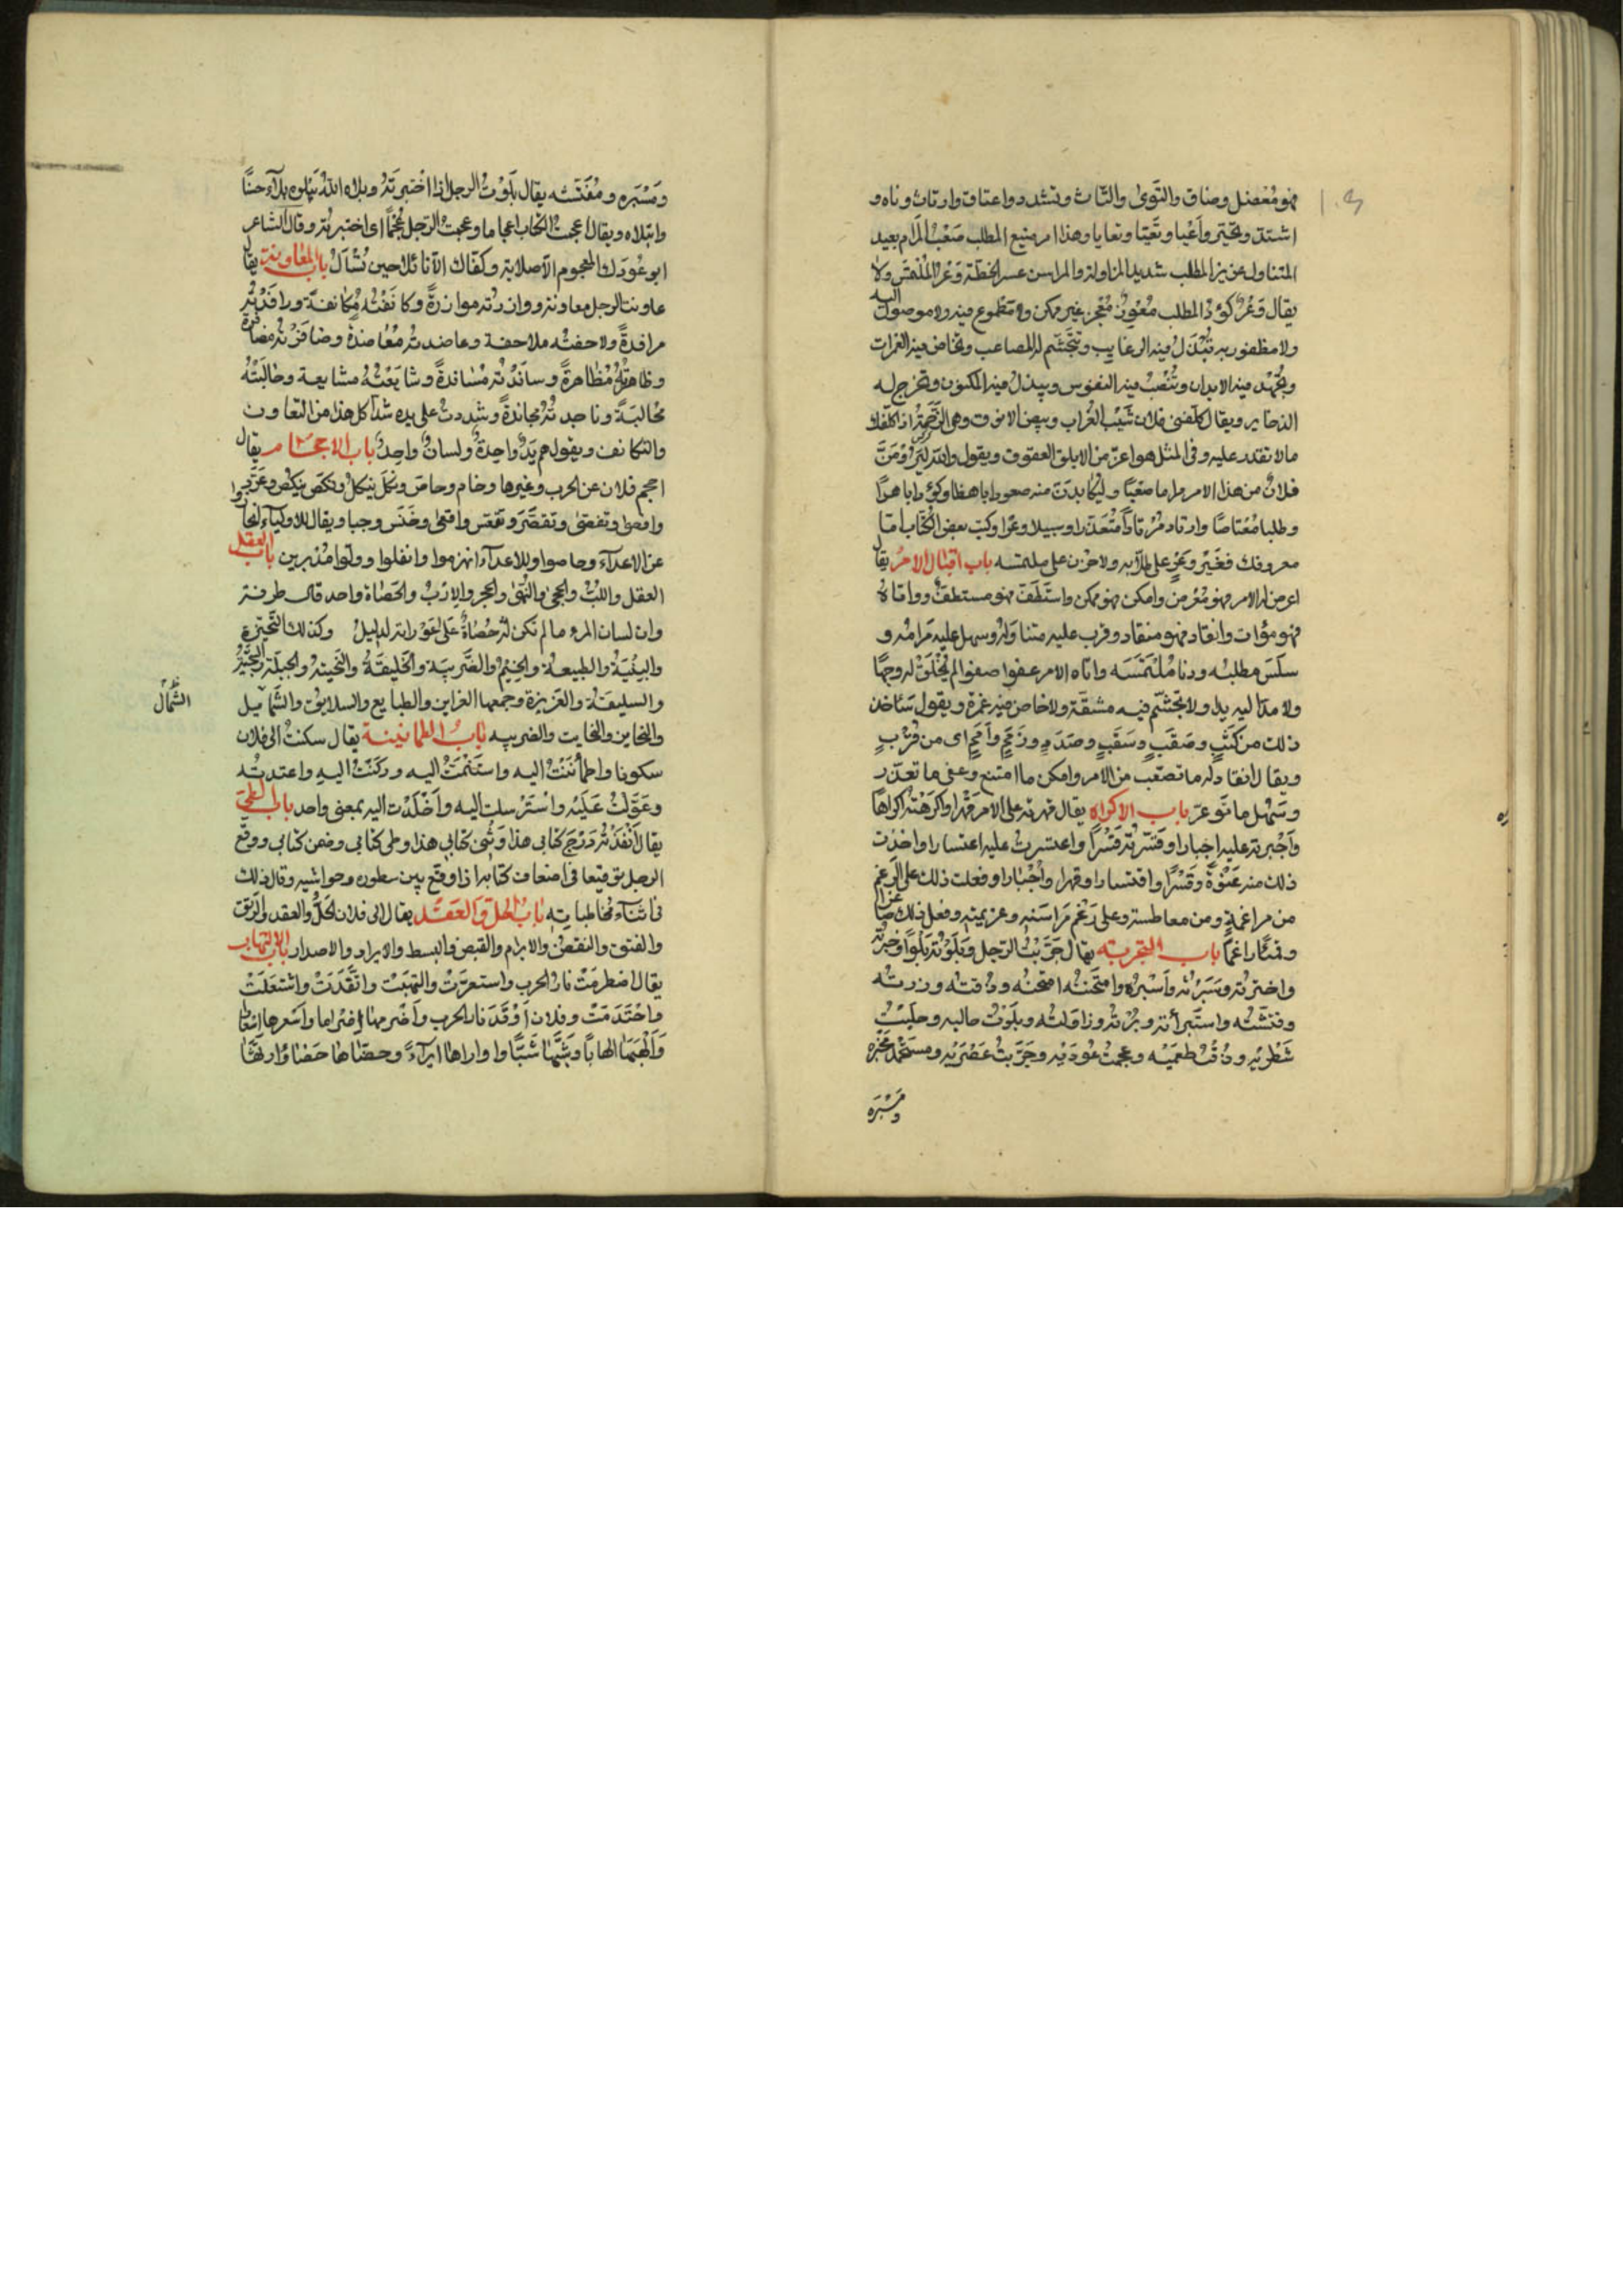 فهو مُعْضِل وضاق والتَوىٰ والتاث وتشدد واعتاق وارتاث وناه و
اشتد وتحيّر وأعْيا وتَعَيّا وتعايا وهذا امر منيع المطلب صَعْب المرام بعيد
المتناول عزيز المطلب شديد المزاولة والمراس عسر الخطة وَعْر الملتمس ولا
يقال وَعُر كؤد المطلب مُعْوِز مُعْجِز غير ممكن ولا مطموع فيه ولا موصول اليه
ولا مظفور به تُبْذل فيه الرغايب وتتجشم له المصاعب وتخاض فيه الغمرات
وتُجْهد فيه الابدان وتُنْصَبُ فيه النفوس ويبذل فيه المكنون وتخرج له
الذخاير ويقال كلفنى فلان شَيْبَ الغُراب وبيض الانوق وهى الرَّخَمَة اذا كلّفك
مالا تقدر عليه وفى المثل هو اعزّ من الابلق العقوق ويقول والله
فلانٌ من هذا الامر مراما صَعْبًا وليكابدَنّ منه صعودا باهظا وكؤدا باهرًا
وطلبا مُعْتاصًا وارتاد مُرْتادًا مُتَعذرا وسبيلا وعرا وكتب بعض الكتّاب امّا
معروفك فغَيْر وَعْرٍ على طلّابه ولا حَزِن على ملتمسه باب اقبال الامْر يقال
اعرض له الامر فهو مُعْرض وامكن فهو ممكن واستَطَفّ فهو مستطفّ وواتاهُ
فهو مؤات وانقاد فهو منقاد وقرب عليه متناوَله وسهل عليه مَرامُه و
سلَسَ مطلبُه ودنا مُلْتَمَسَه واتاه الامر عفوا صفوا لم يُخْلَقْ له وجهًا
ولا مدّ اليه يدا ولا تجشّم فيه مشقّة ولا خاض فيه غمرة ويقول سَآخذ
ذلك من كَثَبٍ وصَقَبٍ وسَقَبٍ وصَدَدٍ وزَمَمٍ وأَمَمٍ اى من قُرْبٍ
ويقال انقاد له ما تصعّب من الامر وامكن ما امتنع وعفى ما تعذّر
وسَهُل ما تَوعرّ باب الاكراه يقال قهرته على الامر قَهْرا واكرَهْتُه اكراهًا
وأَجْبرته عليه اجبارا وقَسَرْتُه قَسْرًا واعتسرتُ عليه اعتسارا واخذت
ذلك منه عَنْوَةً وقَسْرًا واقتسارا وقهرا وأجْبارا وفعلت ذلك على الرغم
من مراغمةٍ ومن معاطسه وعلى رَغْمِ مَراسَنِه وعزيمته وفعل ذلك صاغرا
وقمئًا راغمًا باب التجربه يقال جَرَّبْتُ الرّجل وبَلَوْتُه بَلْوًا وخبرتُه
واختبرتُه وسَبَرْتُه وأَسْبُرُه وامتَحنْتُه امتحنه وذقته ورزتُه
وفتشتُه واستَبرأته وبُرْتُه وزاوَلتُه وبلَوْتُ حاليه وحلَبْتُ
شَطْرَيْه وذُقْتُ طعمَيْه وعجمتُ عُودَيْه وجَرّبتُ عَصْرَيْه ومستَحْمَد مَخْبَره
ومَسْبَرَه
ومَسْبَره ومُفَتَّشه يقال بَلَوْتُ الرجل اذا اخْتبرتَهُ وبلاه اللهُ يَبْلوه بلآءً حسنًا
وابتلاه ويقال اعجمتُ الكتاب اعجاما وعجمتُ الرّجل عُجْمًا اى اختبرتُه وقال الشاعر
ابو عُودَك المعجوم الّا صلابة وكفّاك الّا نائلا حين تُسْأَلُ باب المعاونة يقال
عاونت الرجل معاونة ووازرتُه موازرةً وكانَفْتُه مُكانفةً ورافَدْتُه
مرافدةً ولاحفتُه ملاحفة وعاضدتُه مُعاضدةً وضافَرْتُه مضافرة
وظاهرْتُه مُظاهرةً وسانَدْتُه مُسَاندةً وشايَعْتُهُ مشايعة وحالَبْتُهُ
مُحَالبَةً وناجدتُه مُجاندةً وشددتُ على يده شدًّا كل هذا من التعاون
والتكانف ويقول هم يَدٌ واحِدةٌ ولسانٌ واحِدٌ باب الاحجام يقال
احجم فلان عن الحرب وغيرها وخام وحاص ونكَل ينكلُ ونكَصَ ينكُص وعَرّد
واقعى وتفصّىٰ وتقصَّرَ وتقعّس وافتحى وخَنَسَ وجبا ويقال للاولياء انحازوا
عن الاعدآء وحاصوا وللاعداء انهزموا وانفلوا وولّوا مُدْبرين باب العقل
العقل واللبُّ والحجىٰ والنُّهىٰ والحجر والاِرْبُ والحَصَاة واحد قال طرفة
وان لسان المرء ما لم تكن له حَصَاةٌ عَلىٰ عَوْراته لدليلُ وكذلك النّحيزة
والبِنْيَةُ والطبيعة والخِيْمُ والضَّريبَة والخَليقَةُ والنَحيتة والجِبلّة والسَجيّة
والسليقة والغريزة وجمعها الغراين والطبايع والسلايق والشَّمآئيل
الشّمال
والنخاين والنحايت والضريبه بابُ الطمانينة يقال سكنتُ الى فلان
سكونا واطمأنَنْتُ اليه واستَنَمْتُ اليه وركَنْتُ اليهِ واعتمدتُه
وعَوَّلتُ عَليْه واسْتَرْسلت اليه وأَخْلَدْت اليه بمعنى واحد باب الطيّ
يقال أنْفَذْتُه دَرْجَ كتابى هذا وثِنْىَ كتابى هذا وطى كتابى وضمن كتابى ووقّع
الرجل توقيعا فى اضعاف كتابه اذا وَقّع بين سطوره وحواشيه وقال ذلك
فى اثنآء مُخاطباته بابُ الحلّ والعَقْد يقال الى فلان الحَلُّ والعقد والرَتق
والفتق والنقض والابرام والقبض والبسط والايراد والاصدار باب الالتهاب
يقال اضطرمَتْ نارُ الحرب واستعرَتْ والتهبَتْ واتّقَدَتْ واشتعَلَتْ
واحْتَدمَتْ وفلان أَوْقَدَ نار الحرب وأضْرمها إضراما وأَسْعرها اِسْعارًا
وأَلْهَبَها الهابًا وشَبَّها شَبًّا وأوراها ايرآءً وحضأها حَضْاءً وارثها